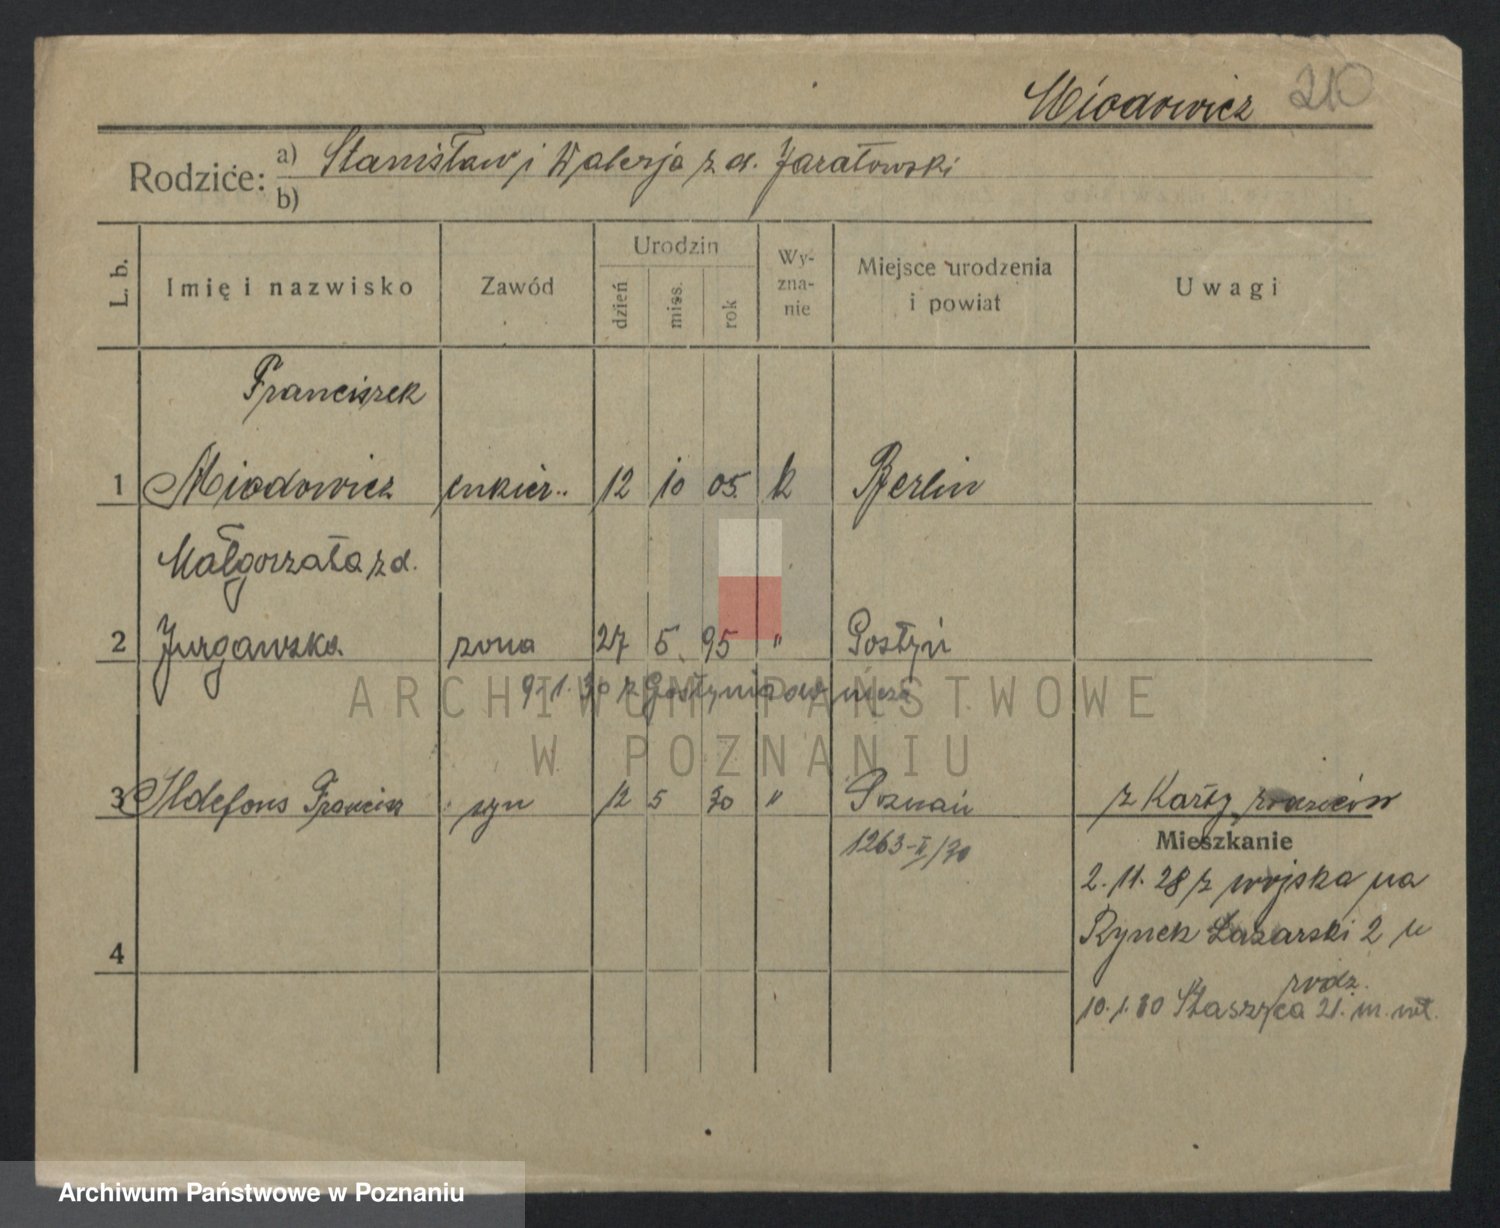 Miodowicz 210
Rodzice: a) Stanisław i Walerja z d. Jarałowski
b)
L. b.
Imię i nazwisko
Zawód
Urodzin
dzień
mies.
rok
Wy-
zna-
nie
Miejsce urodzenia
i powiat
Uwagi
Franciszek
1 Miodowicz cukier.. 12 10 05. k Berlin
Małgorzata z d.
2 Jurgawska. zona 27 5. 95 " Gostyń
9.1.30 z Gostynia od męża
3 Ildefons Francisz syn 12 5 30 " Poznań z Karty rodziców
1263-II/30
Mieszkanie
2. 11. 28 z wojska na
Rynek Łazarski 2 u
rodz.
4
10.1.30 Staszyca 21. m. wł.
ARCHIWUM PAŃSTWOWE
W POZNANIU
Archiwum Państwowe w Poznaniu